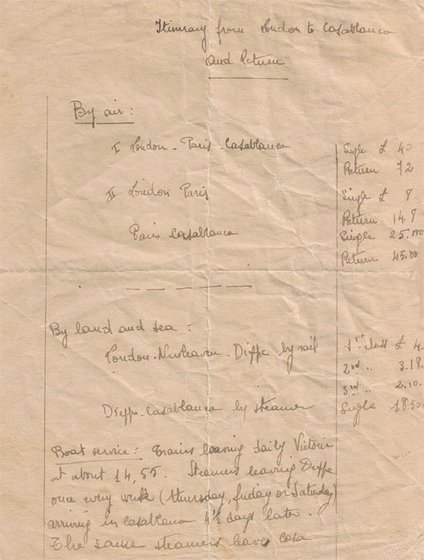 Itinirary from London to Casablanca
and Return
By air:
I London - Paris - Casablanca Single £ 40
Return 72
II London Paris Single £ 8
Return 14.8
Paris Casablanca Single 25.000
Return 45.00
By land and sea:
London - Newhaven - Dieppe by rail 1st class £ 4.
2nd „ 3.18.
3rd „ 2.10.
Dieppe Casablanca by steamer Single £8.50
Boat service: Trains leaving daily Victoria
at about 14,55. Steamers leaving Dieppe
once every week (thursday, friday or Saturday)
arriving in Casablanca 4½ days later.
The same steamers leave Casa